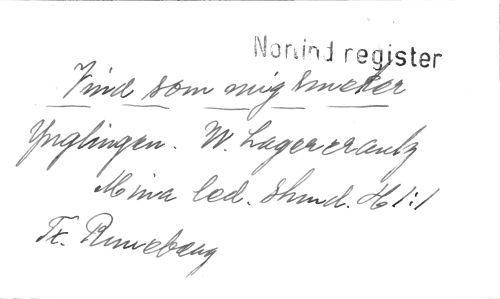 Nonind register
Vind som mig smeker
Ynglingen. W. Lagercrantz
Mina led. Stund. H 1:1
Fr. Runeberg